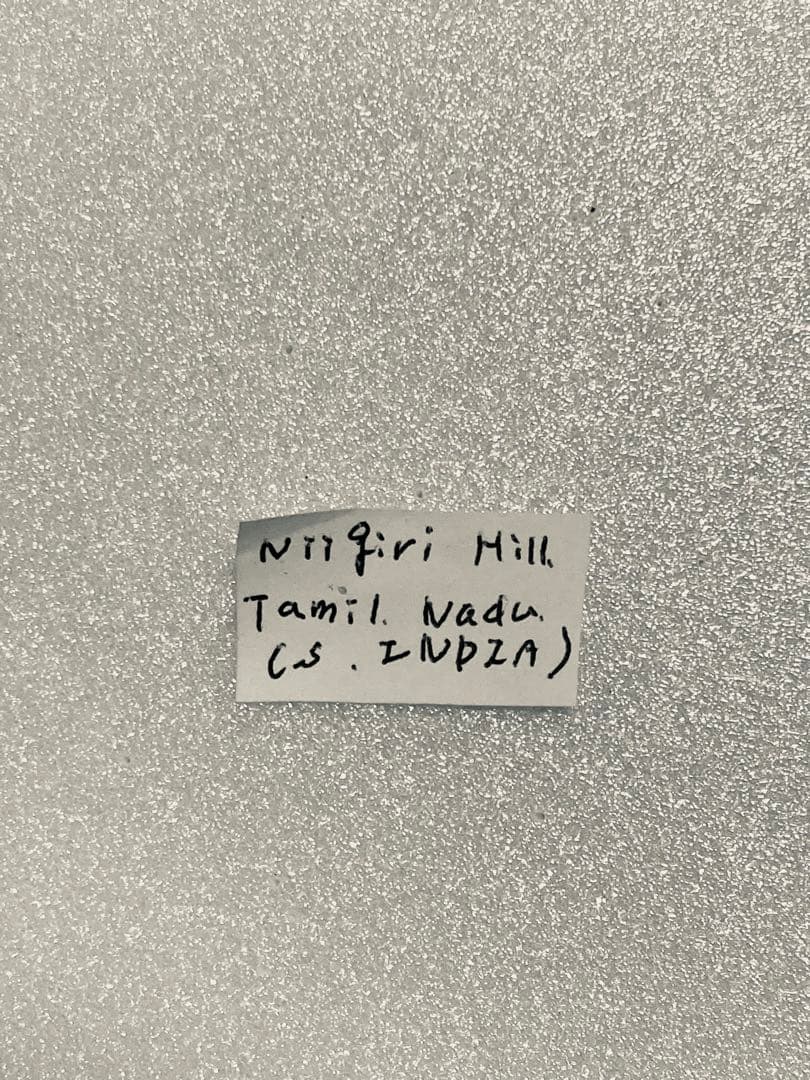 Niigiri Hill.
Tamil. Nadu.
(S. INDIA)